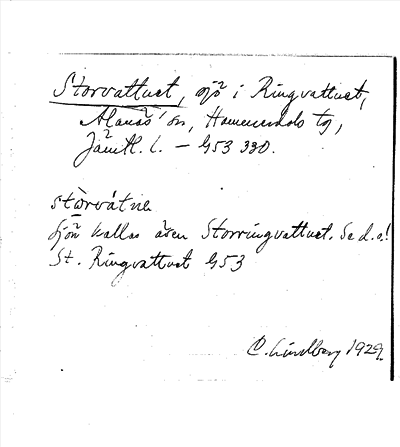 Storvattnet, sjö i Ringvattnet,
Alanäs sn, Hammerdals tg,
Jämtl. l. – G53 330.
storvátnə
Sjön kallas även Storringvattnet. Se d.o.!
St. Ringvattnet G53
C. Lindberg 1929.